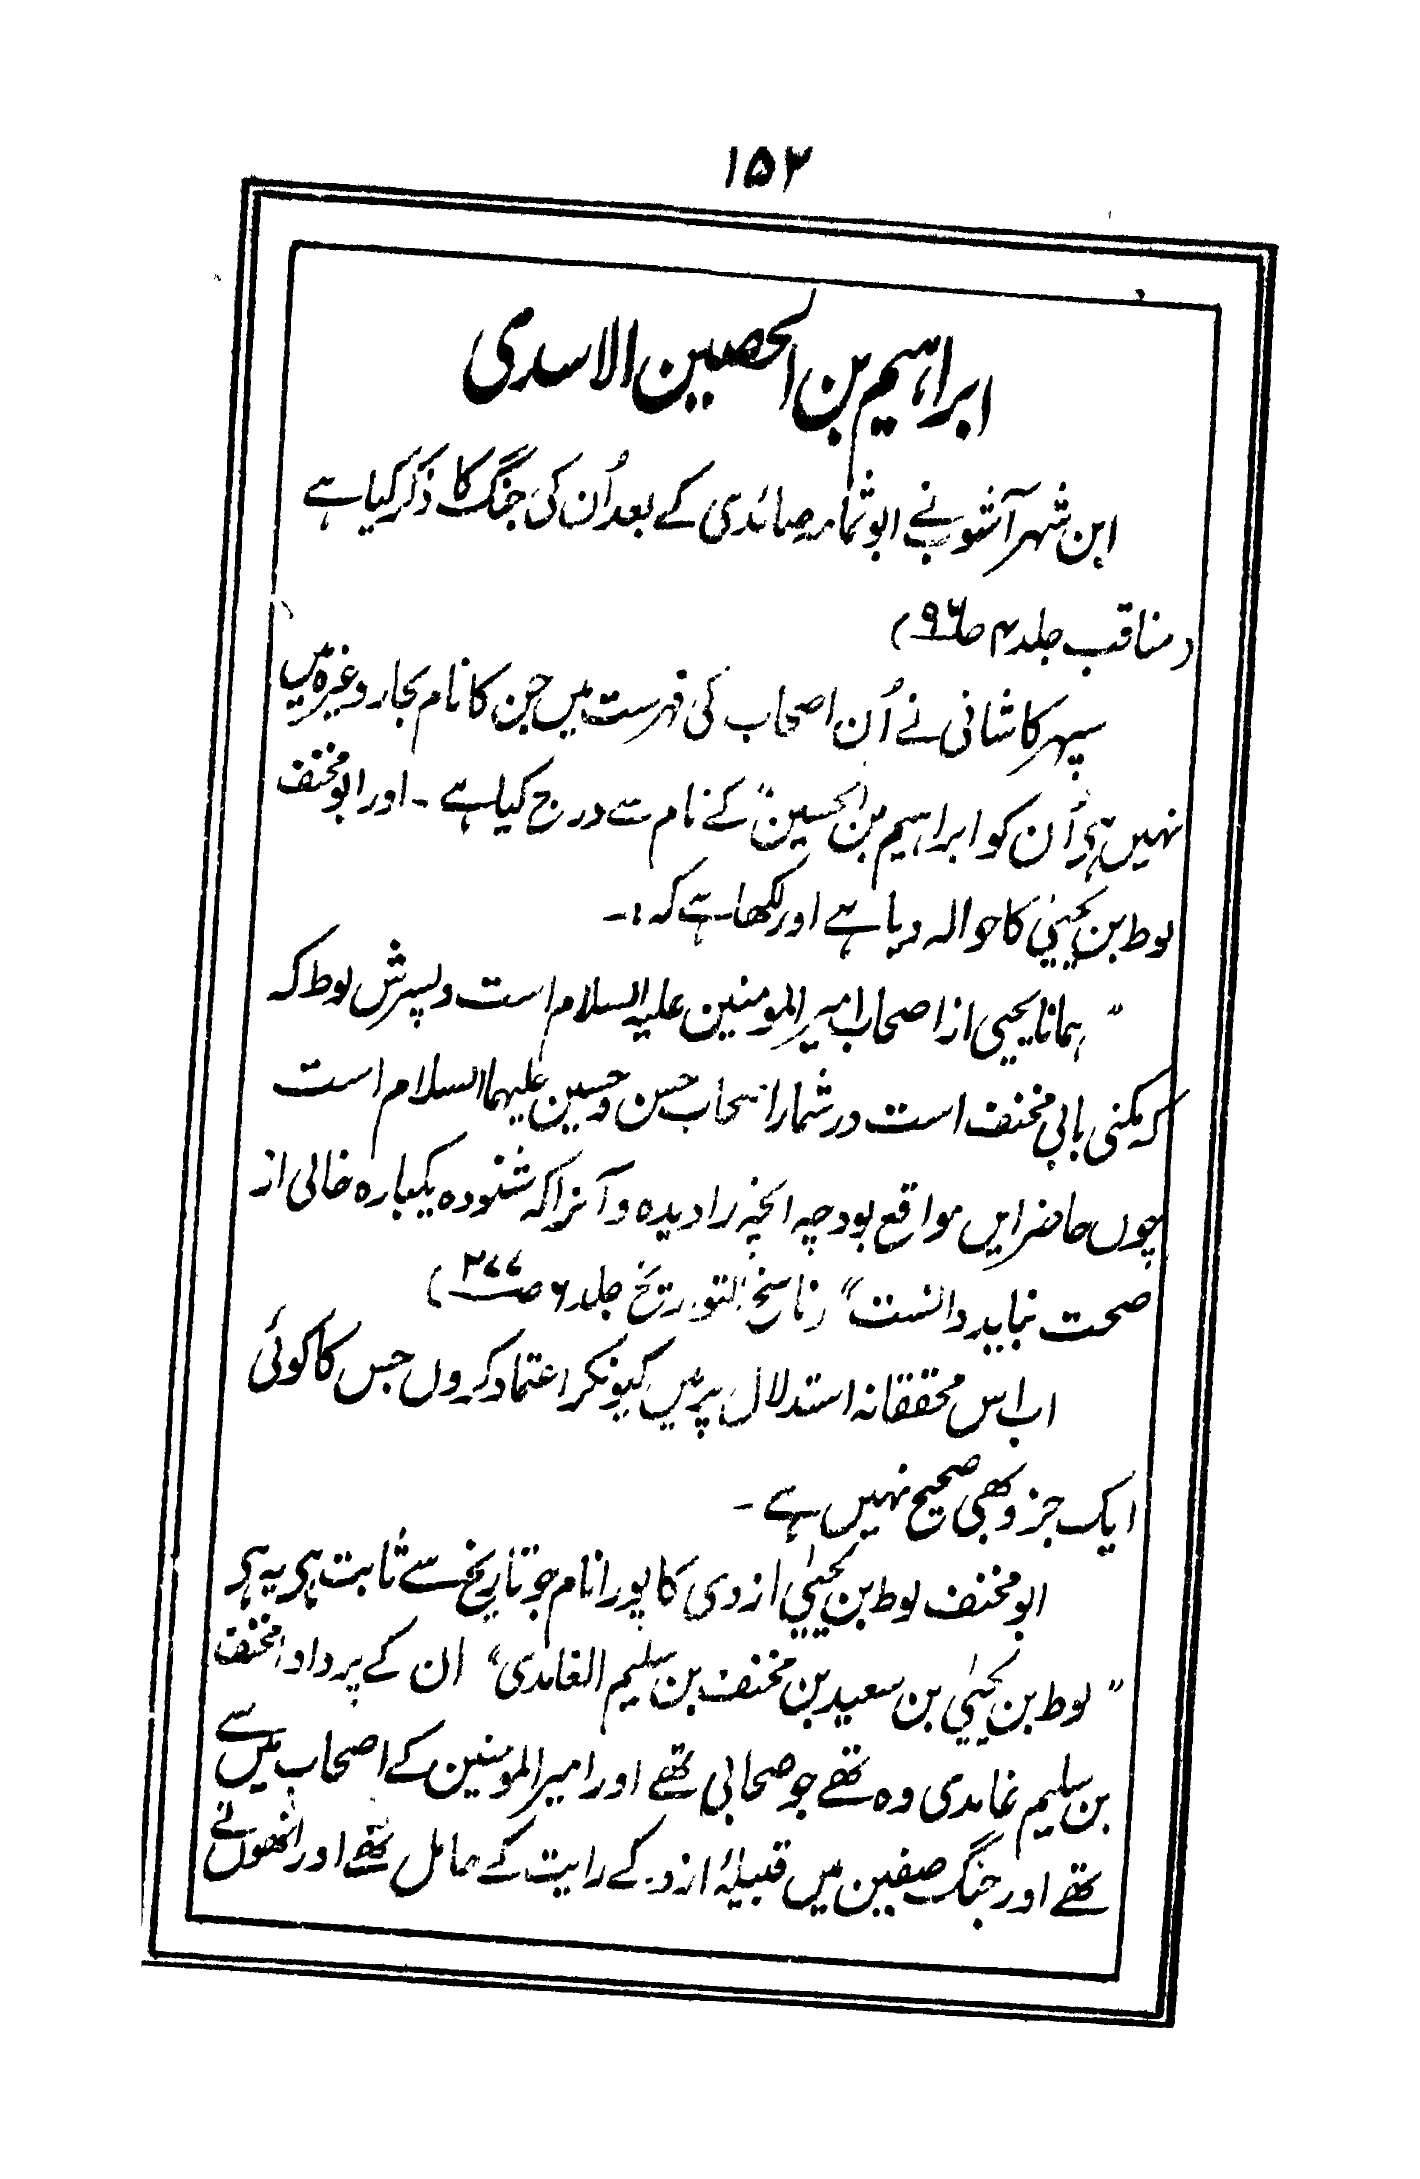 ۱۵۲
ابراہیم بن الحصین الاسدی
ابن شہر آشوب نے ابو ثمامہ صائدی کے بعد اُن کی جنگ کا ذکر کیا ہے
(مناقب جلد ۴ ص۹۶)
سپہر کاشانی نے اُن اصحاب کی فہرست میں جن کا نام بحار وغیرہ میں
نہیں ہی اُن کو ابراہیم بن الحسین" کے نام سے درج کیا ہے۔ اور ابو مخنف
لوط بن یحییٰ کا حوالہ دیا ہے اور لکھا ہے کہ :۔
" ہمانا یحیی از اصحاب امیر المومنین علیہ السلام است و پسرش لوط کہ
کہ مکنی بابی مخنف است در شمار اصحاب حسن و حسین علیہما السلام است
چوں حاضر ایں مواقع بود چہ انچہ را دیدہ و آنرا کہ شنودہ یکبارہ خالی از
صحت نباید دانست" (ناسخ التواریخ جلد ۶ ص۲۷۷)
اب اس محققانہ استدلال پر میں کیونکر اعتماد کروں جس کا کوئی
ایک جزو بھی صحیح نہیں ہے۔
ابو مخنف لوط بن یحییٰ ازدی کا پورا نام جو تاریخ سے ثابت ہی یہ ہی
" لوط بن یحییٰ بن سعید بن مخنف بن سلیم الغامدی" ان کے پردادا مخنف
بن سلیم غامدی وہ تھے جو صحابی تھے اور امیر المومنین کے اصحاب میں سے
تھے اور جنگ صفین میں قبیلۂ ازد کے رایت کے حامل تھے اور انھوں نے